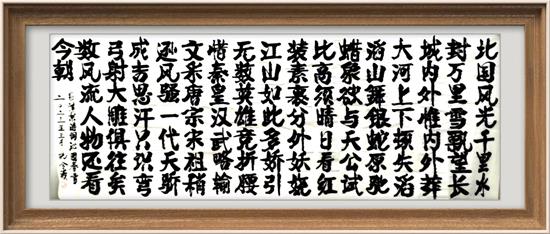 北国风光千里冰
封万里雪飘望长
城内外惟内外莽
大河上下顿失滔
滔山舞银蛇原驰
蜡象欲与天公试
比高须晴日看红
装素裹分外妖娆
江山如此多娇引
无数英雄竞折腰
惜秦皇汉武略输
文采唐宗宋祖稍
逊风骚一代天骄
成吉思汗只识弯
弓射大雕俱往矣
数风流人物还看
今朝